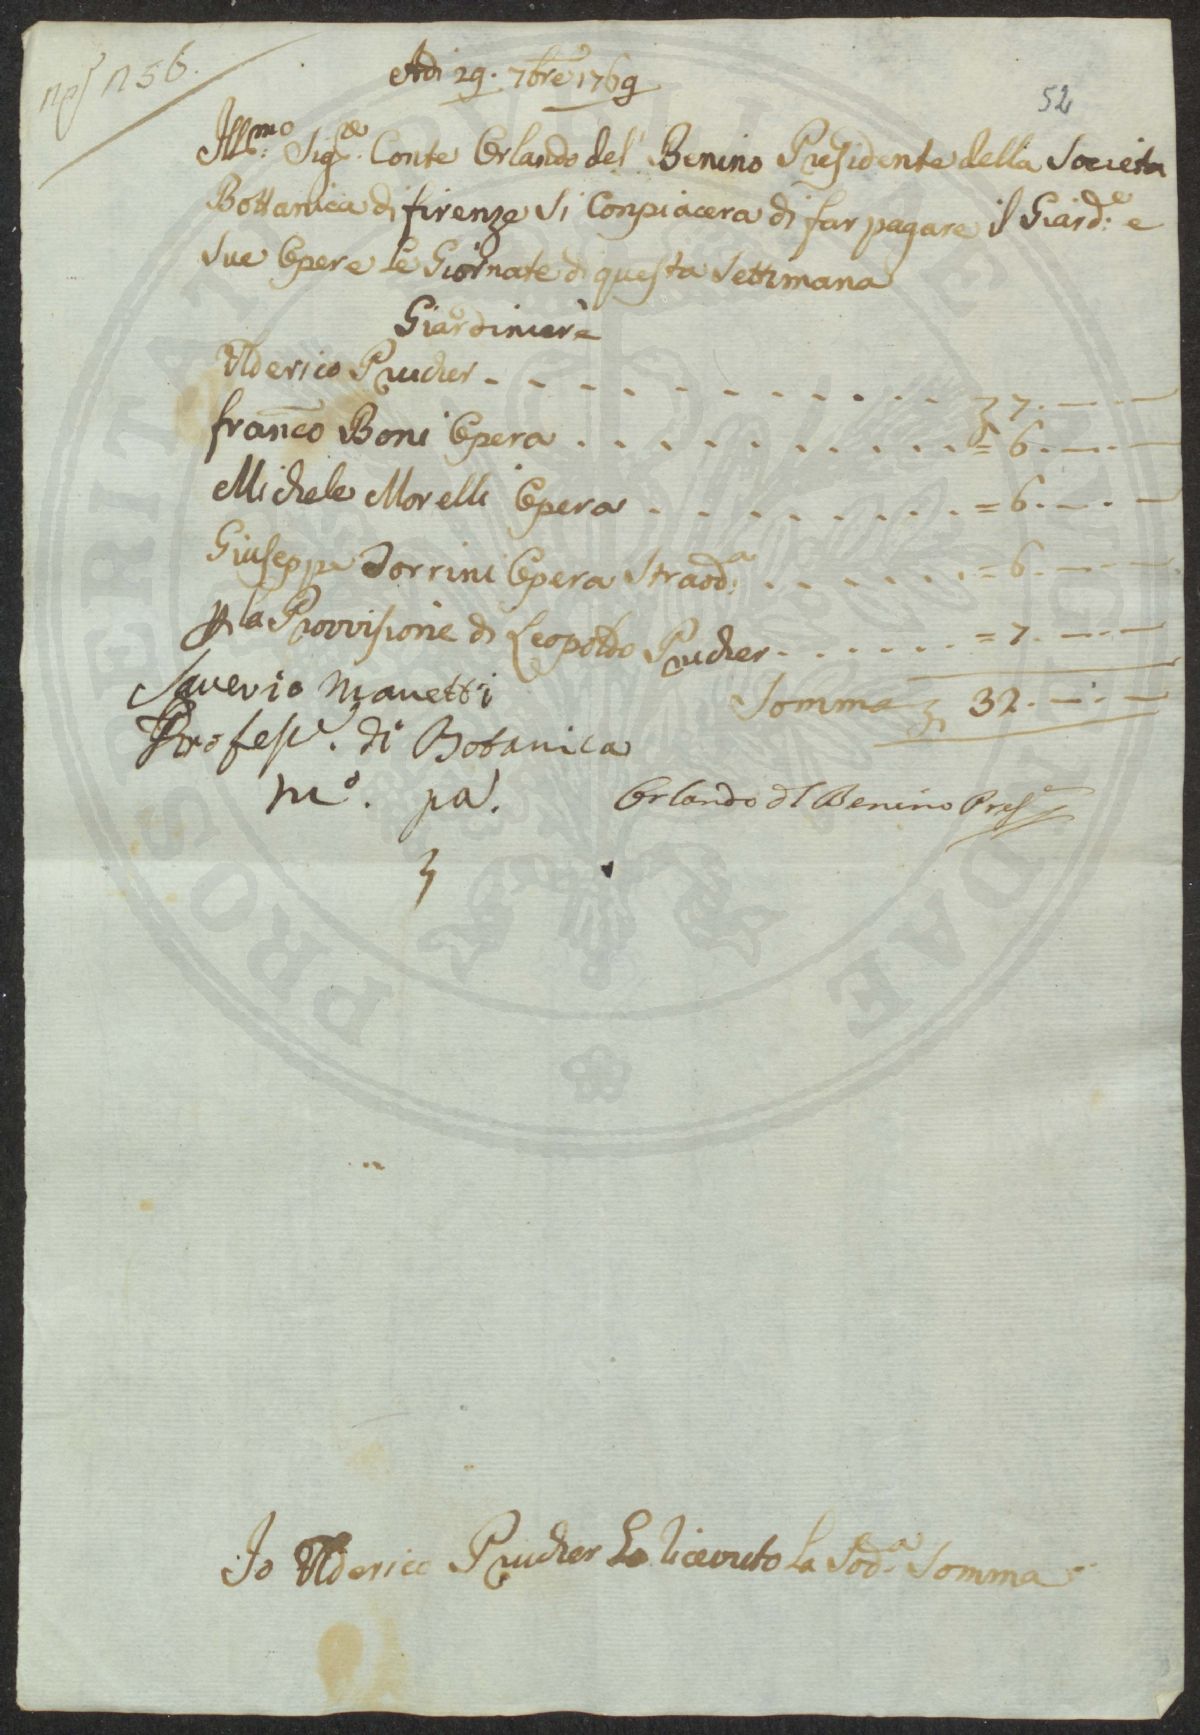 N 56.
Adi 29. 7bre 1769
52
Ill.mo Sig.re Conte Orlando del Benino Presidente della Societa
Bottanica di firenze si Conpiacera di far pagare il Giard.e e
sue Opere le Giornate di questa Settimana
Giardiniere
Ulderico Prucher - - - - 7. — —
franco Boni Opera . . . . = 6. — —
Michele Morelli Opera . . . . = 6. — —
Giuseppe Torrini Opera straod.a . . . . = 6. — —
P la Provvisione di Leopoldo Prucher . . . . = 7. — —
Somma 32. — —
Saverio Manetti
Profess.e di Botanica
m.o pa.
Orlando del Benino Pres.e
Io Ulderico Prucher o ricevuto la sod.a somma
PROSPERITATI PUBLICAE AUGENDAE